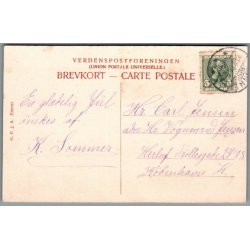 VERDENSPOSTFORENINGEN
(UNION POSTALE UNIVERSELLE)
BREVKORT – CARTE POSTALE
En glædelig Jul
ønskes af
K. Sommer
Hr. Carl Jensen
adr. Hr. Vognmand Jensen
Herluf Trollesgade
København K.